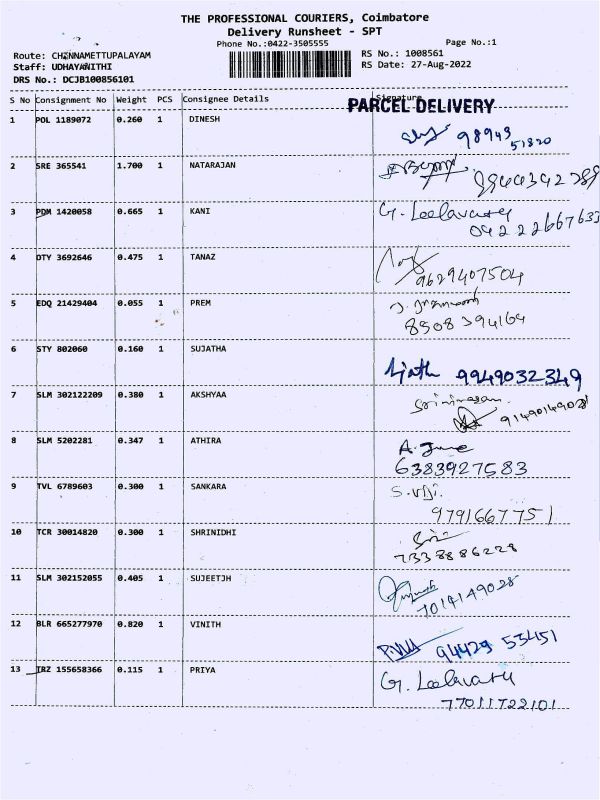 THE PROFESSIONAL COURIERS, Coimbatore
Delivery Runsheet - SPT
Phone No.:0422-3505555
Page No.:1
Route: CHINNAMETTUPALAYAM
RS No.: 1008561
Staff: UDHAYANITHI
RS Date: 27-Aug-2022
DRS No.: DCJB100856101
S No Consignment No Weight PCS Consignee Details Signature
PARCEL DELIVERY
1 POL 1189072 0.260 1 DINESH
98943 51820
2 SRE 365541 1.700 1 NATARAJAN
3 PDM 1420058 0.665 1 KANI G. Leelavathy
04222667633
4 OTY 3692646 0.475 1 TANAZ
9629407504
5 EDQ 21429404 0.055 1 PREM
8508394164
6 STY 802060 0.160 1 SUJATHA
9949032349
7 SLM 302122209 0.380 1 AKSHYAA Srinivasan
91490149028
8 SLM 5202281 0.347 1 ATHIRA A. June
6383927583
9 TVL 6789603 0.300 1 SANKARA S. viji.
9791667751
10 TCR 30014820 0.300 1 SHRINIDHI
7338886228
11 SLM 302152055 0.405 1 SUJEETJH
7014149028
12 BLR 665277970 0.820 1 VINITH
94429 53451
13 TRZ 155658366 0.115 1 PRIYA G. Leelavathy
77011722101